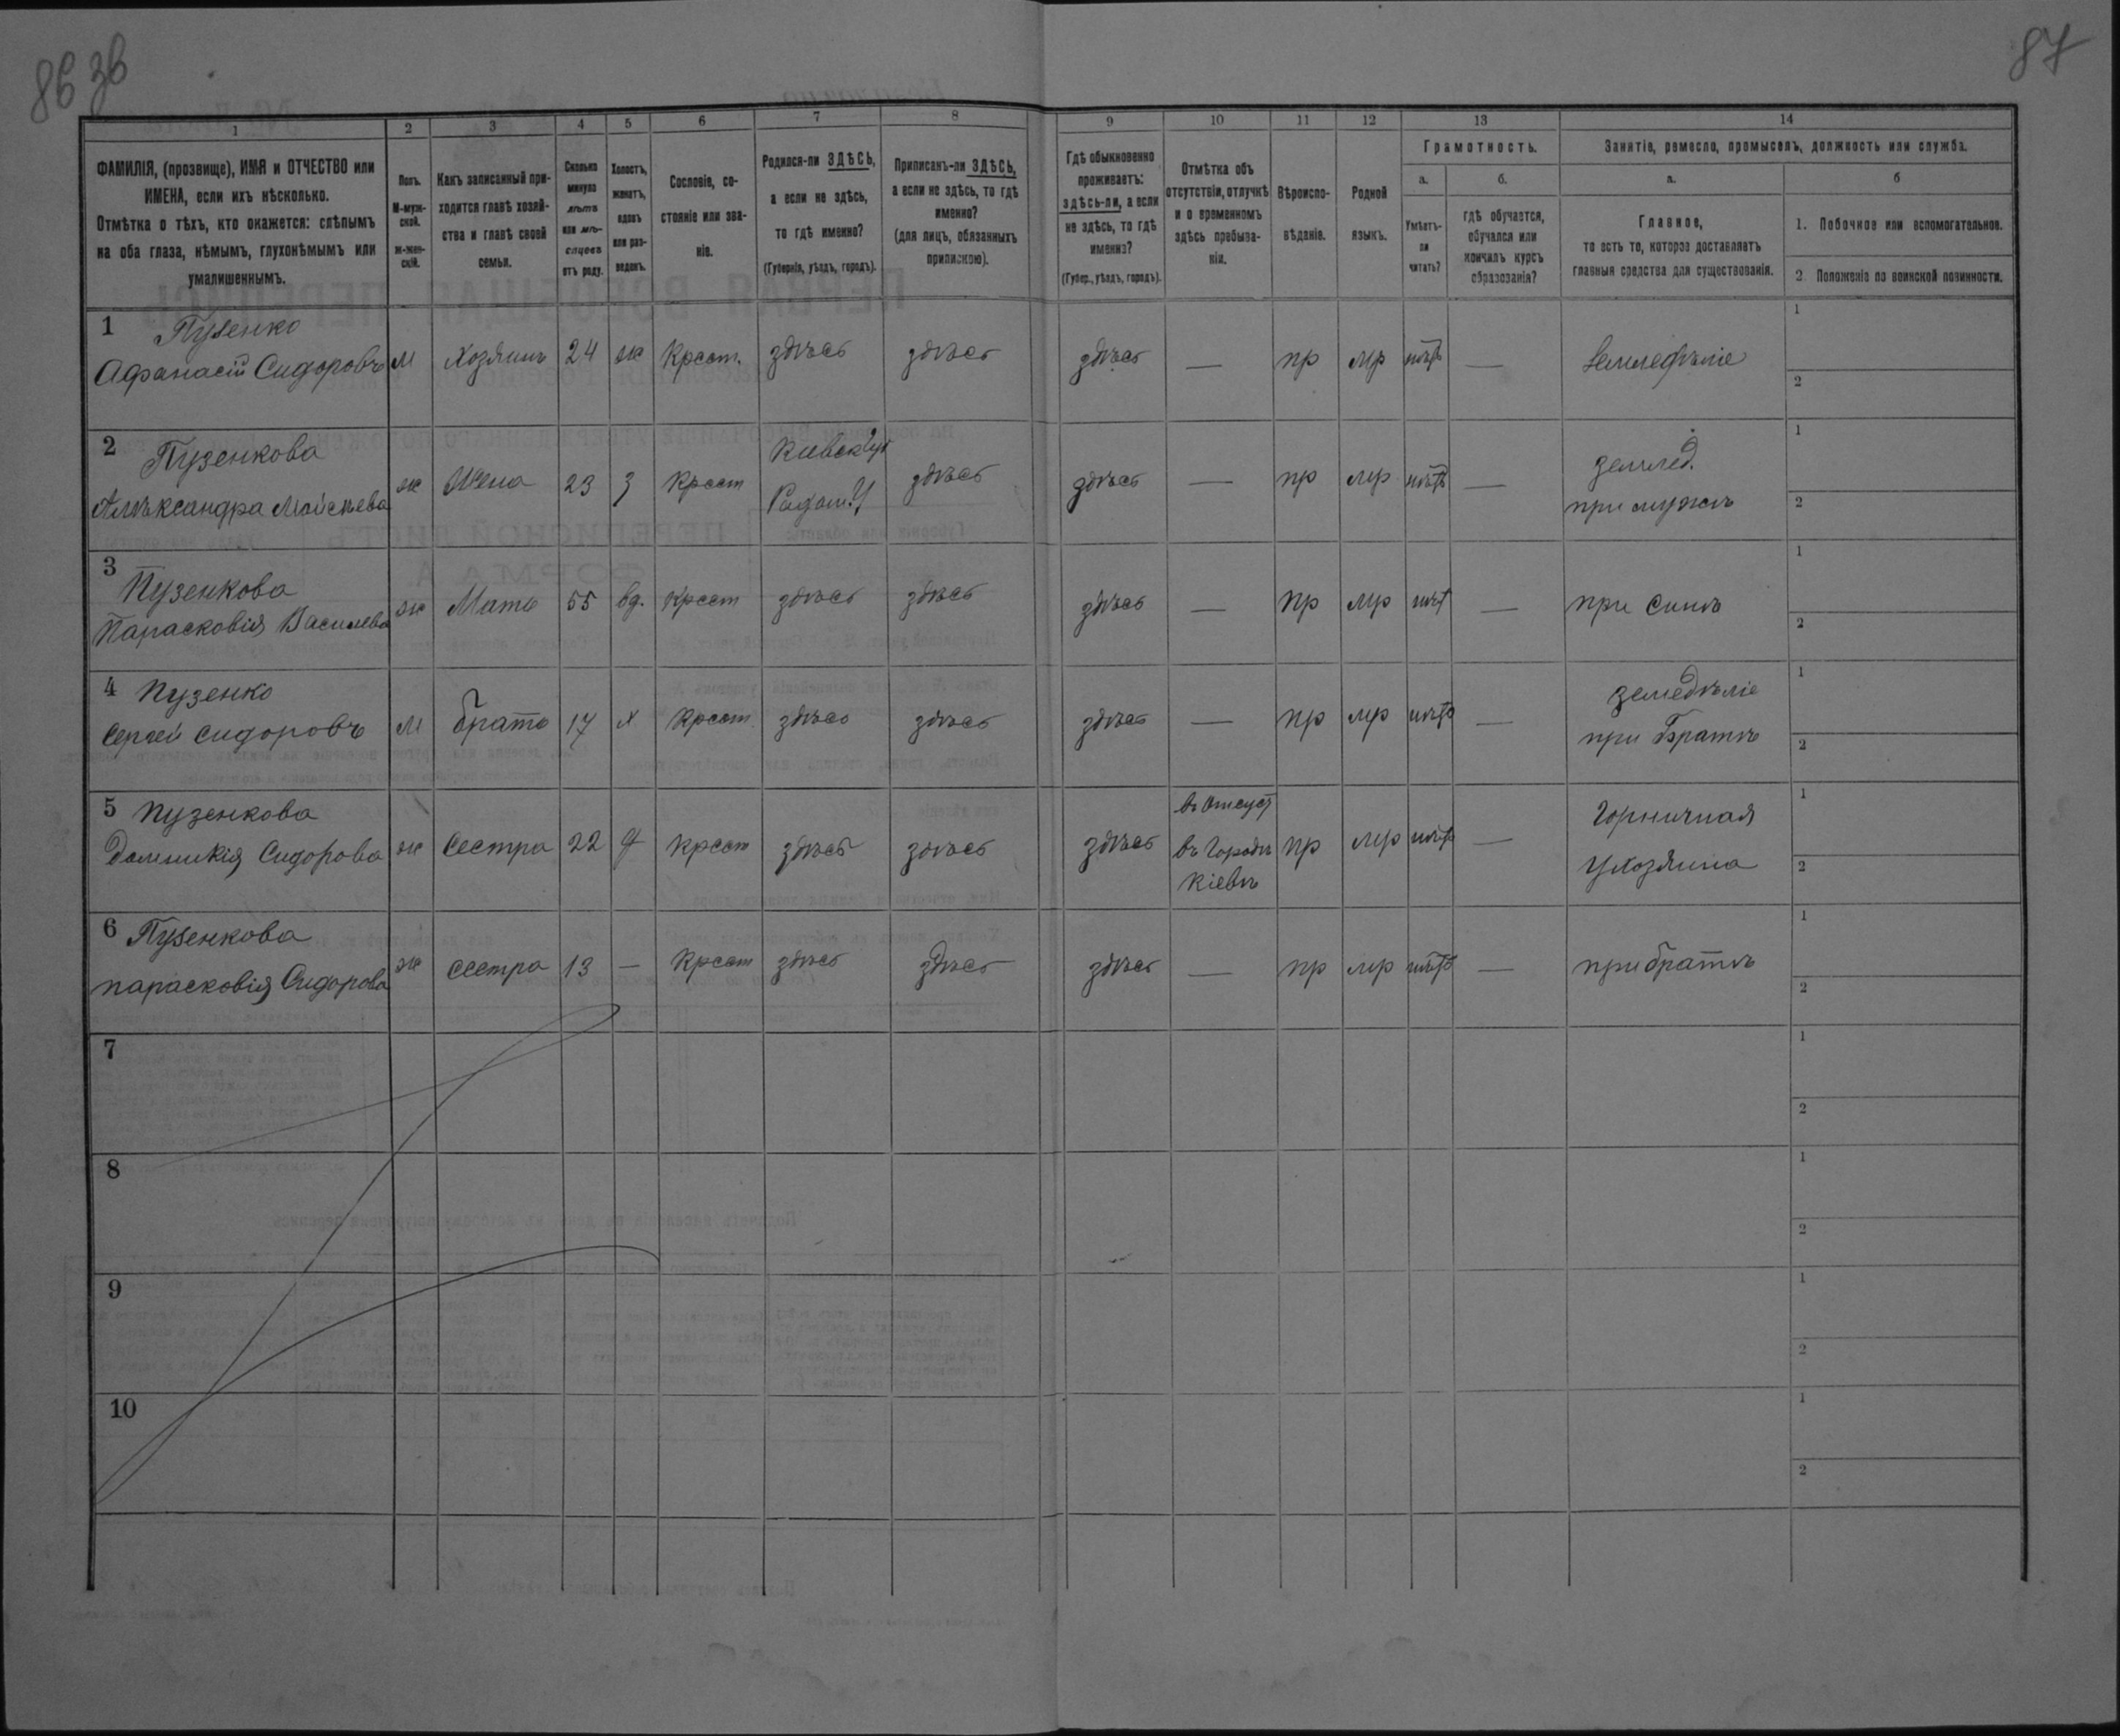 86 зв
87
1
2
3
4
5
6
7
8
9
10
11
12
13
14
ФАМИЛІЯ, (прозвище), ИМЯ и ОТЧЕСТВО или
ИМЕНА, если ихъ нѣсколько.
Отмѣтка о тѣхъ, кто окажется: слѣпымъ
на оба глаза, нѣмымъ, глухонѣмымъ или
умалишеннымъ.
Полъ.
М-муж-
ской.
ж-жен-
скій.
Какъ записанный при-
ходится главѣ хозяй-
ства и главѣ своей
семьи.
Сколько
минуло
лѣтъ
или мѣ-
сяцевъ
отъ роду.
Холостъ,
женатъ,
вдовъ
или раз-
веденъ.
Сословіе, со-
стояніе или зва-
ніе.
Родился-ли ЗДѢСЬ,
а если не здѣсь,
то гдѣ именно?
(Губернія, уѣздъ, городъ).
Приписанъ-ли ЗДѢСЬ,
а если не здѣсь, то гдѣ
именно?
(для лицъ, обязанныхъ
припискою).
Гдѣ обыкновенно
проживаетъ:
здѣсь-ли, а если
не здѣсь, то гдѣ
именно?
(Губер., уѣздъ, городъ).
Отмѣтка объ
отсутствіи, отлучкѣ
и о временномъ
здѣсь пребыва-
ніи.
Вѣроиспо-
вѣданіе.
Родной
языкъ.
Грамотность.
а.
Умѣетъ-
ли
читать?
б.
гдѣ обучается,
обучался или
кончилъ курсъ
образованія?
Занятіе, ремесло, промыселъ, должность или служба.
а.
Главное,
то есть то, которое доставляетъ
главныя средства для существованія.
б
1. Побочное или вспомогательное.
2. Положеніе по воинской повинности.
1 Пузенко
Афанасій Сидоровъ м Хозяинъ 24 ж Крест. здѣсь здѣсь здѣсь — пр мр нѣтъ — Земледѣліе
1
2
2 Пузенкова Киевск губ
Алѣксандра Мойсѣева ж Жена 23 з Крест Радом. У здѣсь здѣсь — пр мр нѣтъ — землед.
при мужѣ
1
2
3 Пузенкова
Парасковія Василева ж Мать 55 вд. Крест здѣсь здѣсь здѣсь — пр мр нѣт — при синѣ
1
2
4 Пузенко
Сергей Сидоровъ м братъ 17 х Крест здѣсь здѣсь здѣсь — пр мр нѣтъ — земедѣліе
при Братѣ
1
2
5 Пузенкова
Домникія Сидорова ж Сестра 22 д Крест здѣсь здѣсь здѣсь въ отсуст
въ городѣ
Кіевѣ
пр мр нѣтъ — Горничная
у хозяина
1
2
6 Пузенкова
парасковія Сидорова ж сестра 13 — Крест здѣсь здѣсь здѣсь — пр мр нѣтъ — при братѣ
1
2
7
1
2
8
1
2
9
1
2
10
1
2